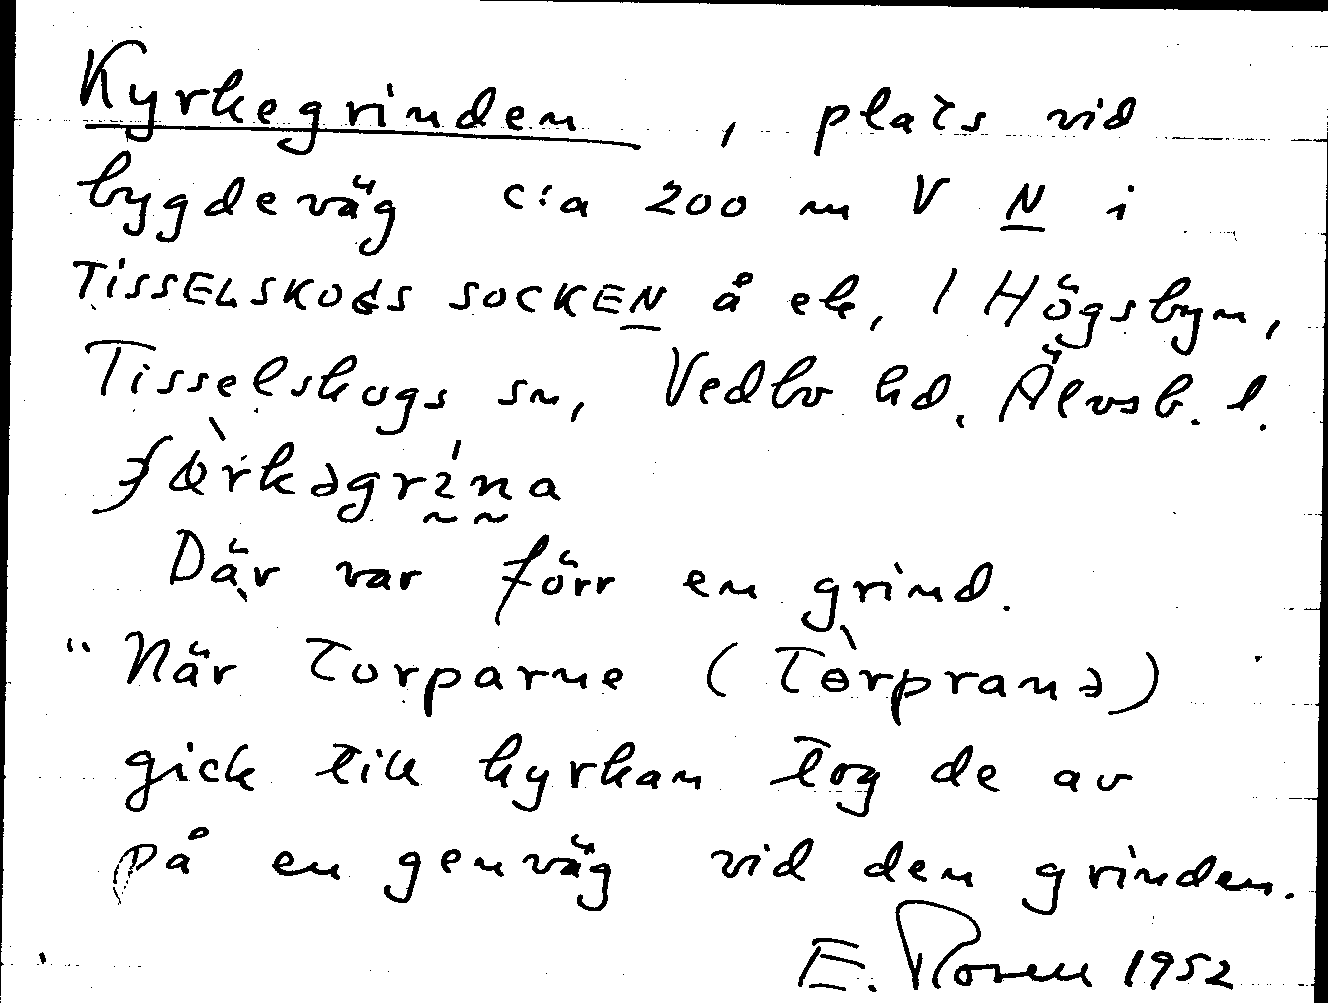 Kyrkegrinden, plats vid
bygdeväg c:a 200 m V N i
TISSELSKOGS SOCKEN å ek, / Högsbyn,
Tisselskogs sn, Vedbo hd. Älvsb. l.
grína
Där var förr en grind.
"När torparne (Tòrpranə)
gick till kyrkan tog de av
på en genväg vid den grinden.
E. Rosell 1952